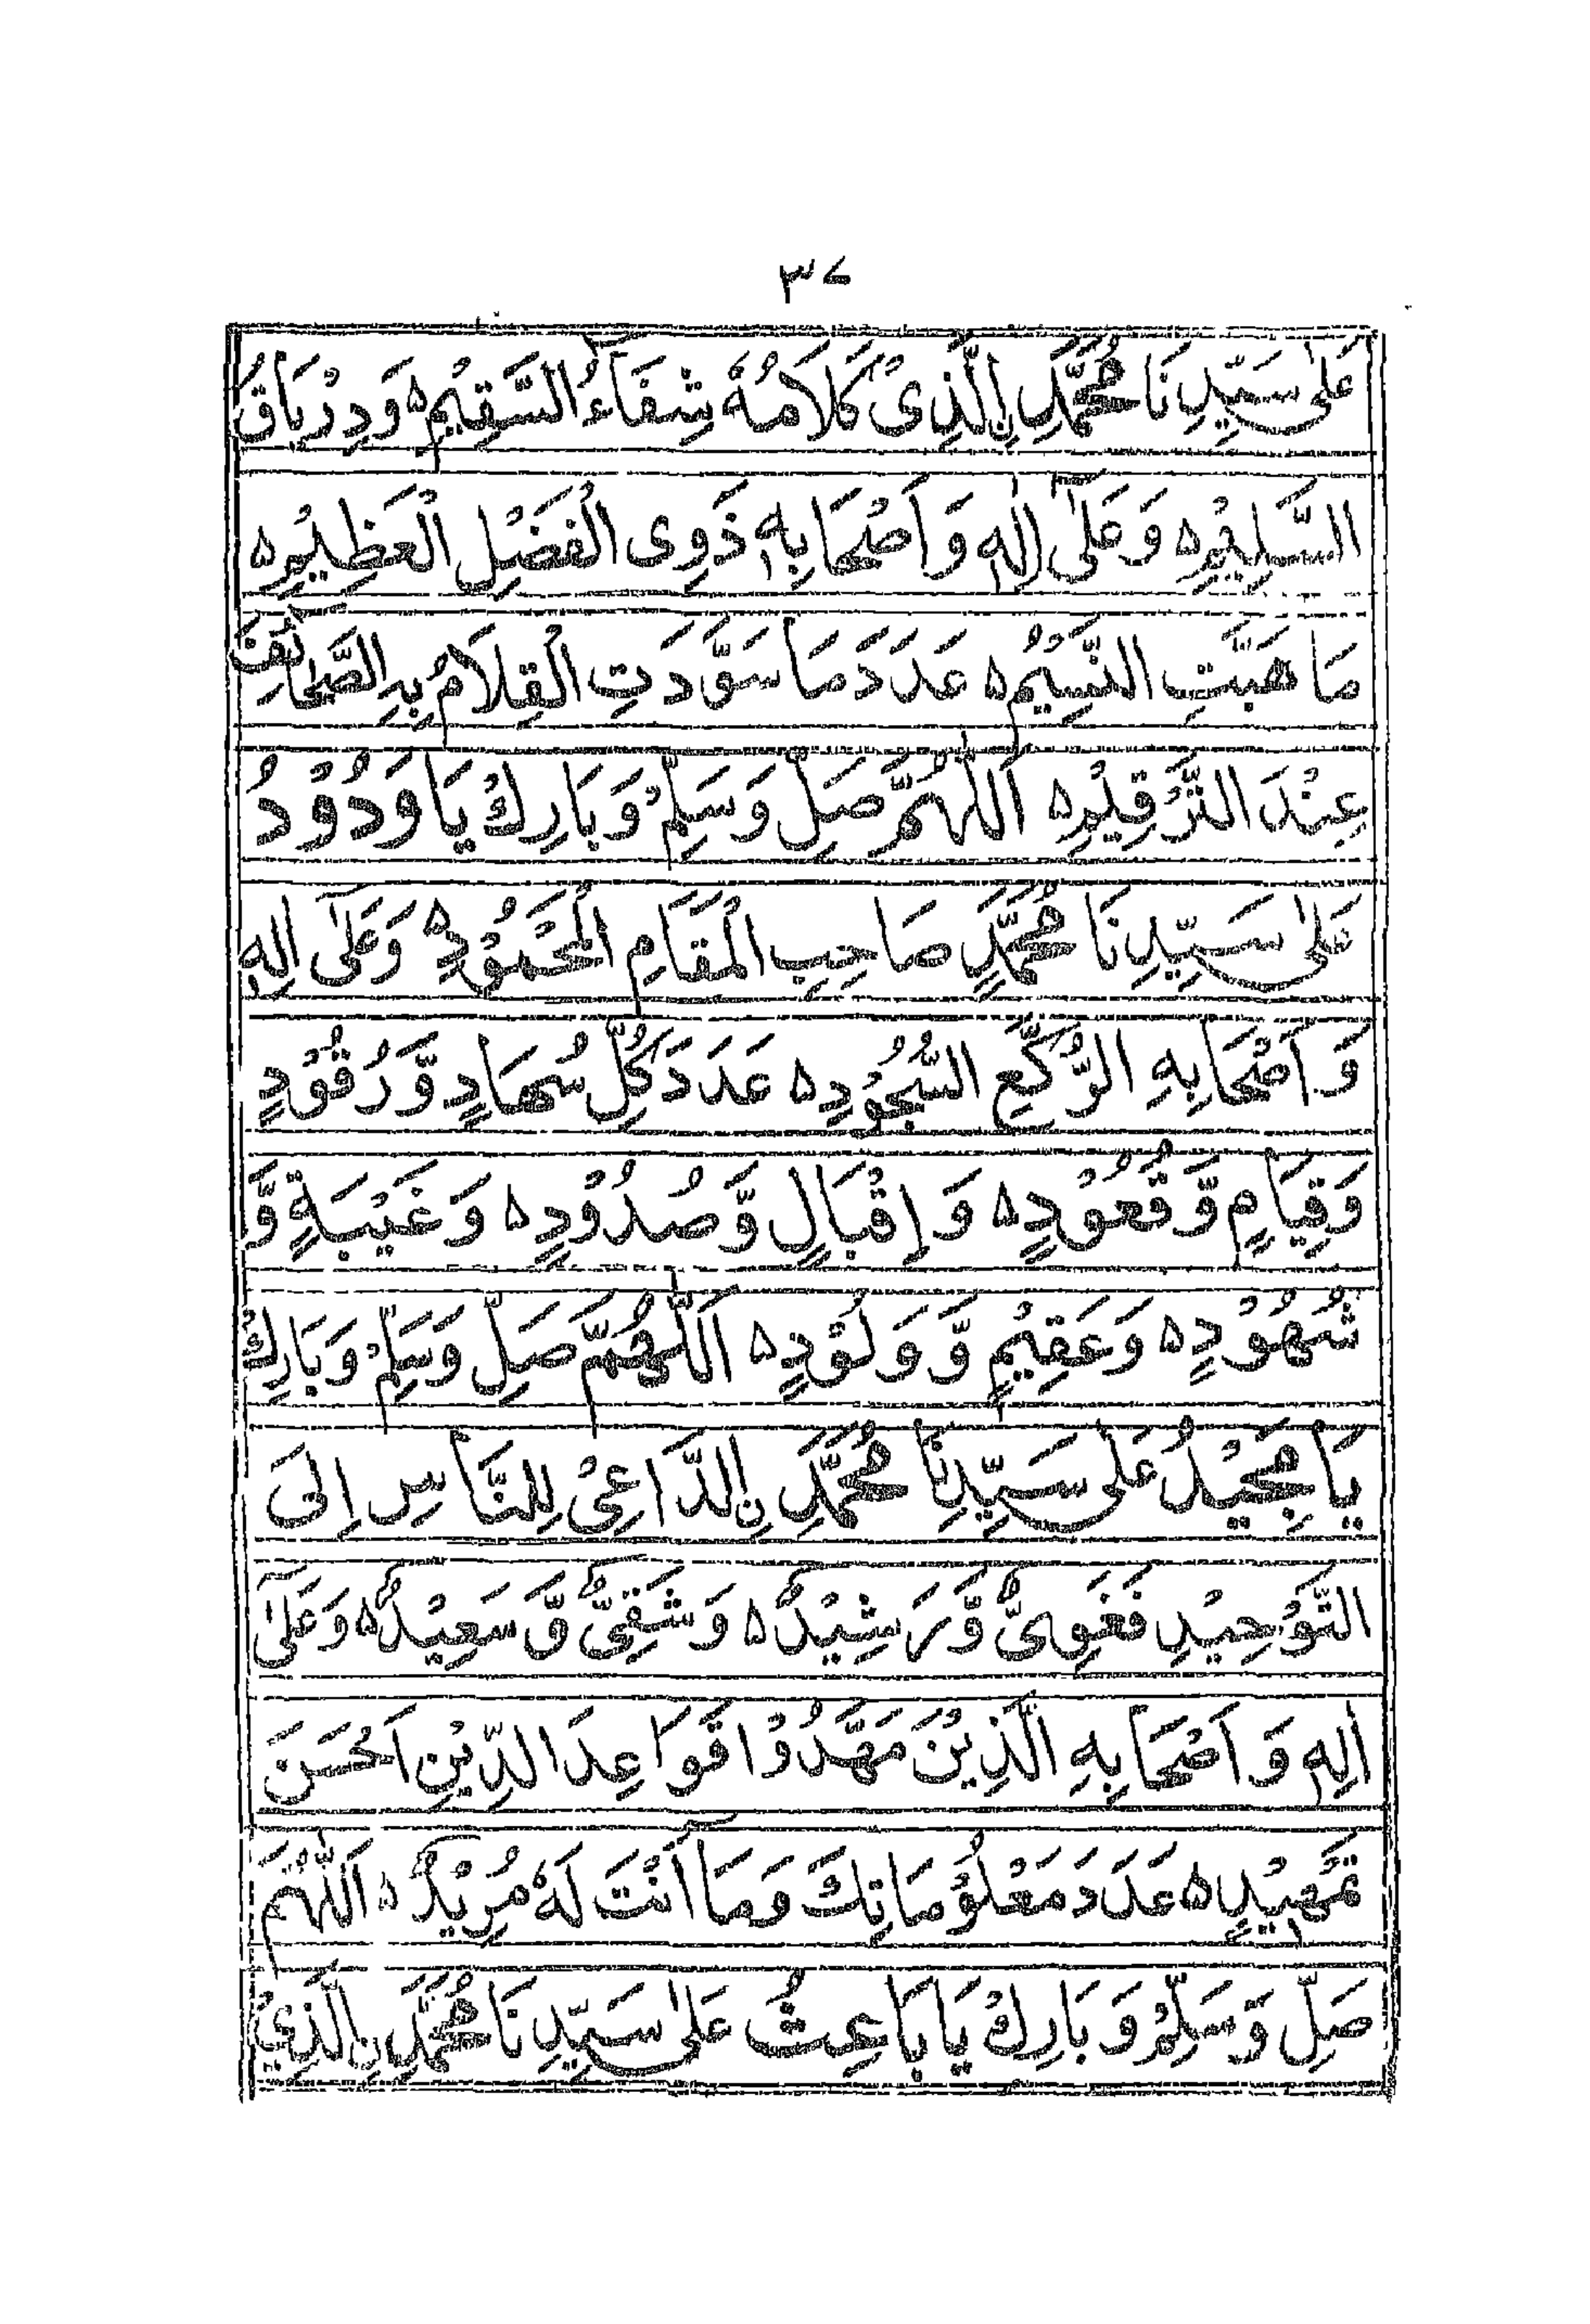 ٣٧
عَلٰى سَيِّدِنَا مُحَمَّدِنِ الَّذِىْ كَلَامُهٗ شِفَآءُ السَّقِيْمِ٥ وَدِرْيَاقُ
السَّلِيْمِ٥ وَعَلٰٓى اٰلِهٖ وَاَصْحَابِهٖ ذَوِى الْفَضْلِ الْعَظِيْمِ٥
مَا هَبَّتِ النَّسِيْمُ٥ عَدَدَ مَا سَوَّدَتِ الْقِلَامُ بِهِ الصَّحَآئِفَ
عِنْدَ التَّرْقِيْمِ٥ اَللّٰهُمَّ صَلِّ وَسَلِّمْ وَبَارِكْ يَا وَدُوْدُ
عَلٰى سَيِّدِنَا مُحَمَّدٍ صَاحِبِ الْمَقَامِ الْمَحْمُوْدِ٥ وَعَلٰٓى اٰلِهٖ
وَاَصْحَابِهِ الرُّكَّعِ السُّجُوْدِ٥ عَدَدَ كُلِّ سُهَادٍ وَّرُقُوْدٍ
وَقِيَامٍ وَّقُعُوْدٍ٥ وَاِقْبَالٍ وَّصُدُوْدٍ٥ وَغَيْبَةٍ وَّ
شُهُوْدٍ٥ وَعَقِيْمٍ وَّوَلُوْدٍ٥ اَللّٰهُمَّ صَلِّ وَسَلِّمْ وَبَارِكْ
يَا مَجِيْدُ عَلٰى سَيِّدِنَا مُحَمَّدِنِ الدَّاعِىْ لِلنَّاسِ اِلَى
التَّوْحِيْدِ فَغَوِىٌّ وَّرَشِيْدٌ٥ وَشَقِىٌّ وَّسَعِيْدٌ٥ وَعَلٰٓى
اٰلِهٖ وَاَصْحَابِهِ الَّذِيْنَ مَهَّدُوْا قَوَاعِدَ الدِّيْنِ اَحْسَنَ
تَمْهِيْدٍ٥ عَدَدَ مَعْلُوْمَاتِكَ وَمَآ اَنْتَ لَهٗ مُرِيْدٌ٥ اَللّٰهُمَّ
صَلِّ وَسَلِّمْ وَبَارِكْ يَا بَاعِثُ عَلٰى سَيِّدِنَا مُحَمَّدِنِ الَّذِىْ